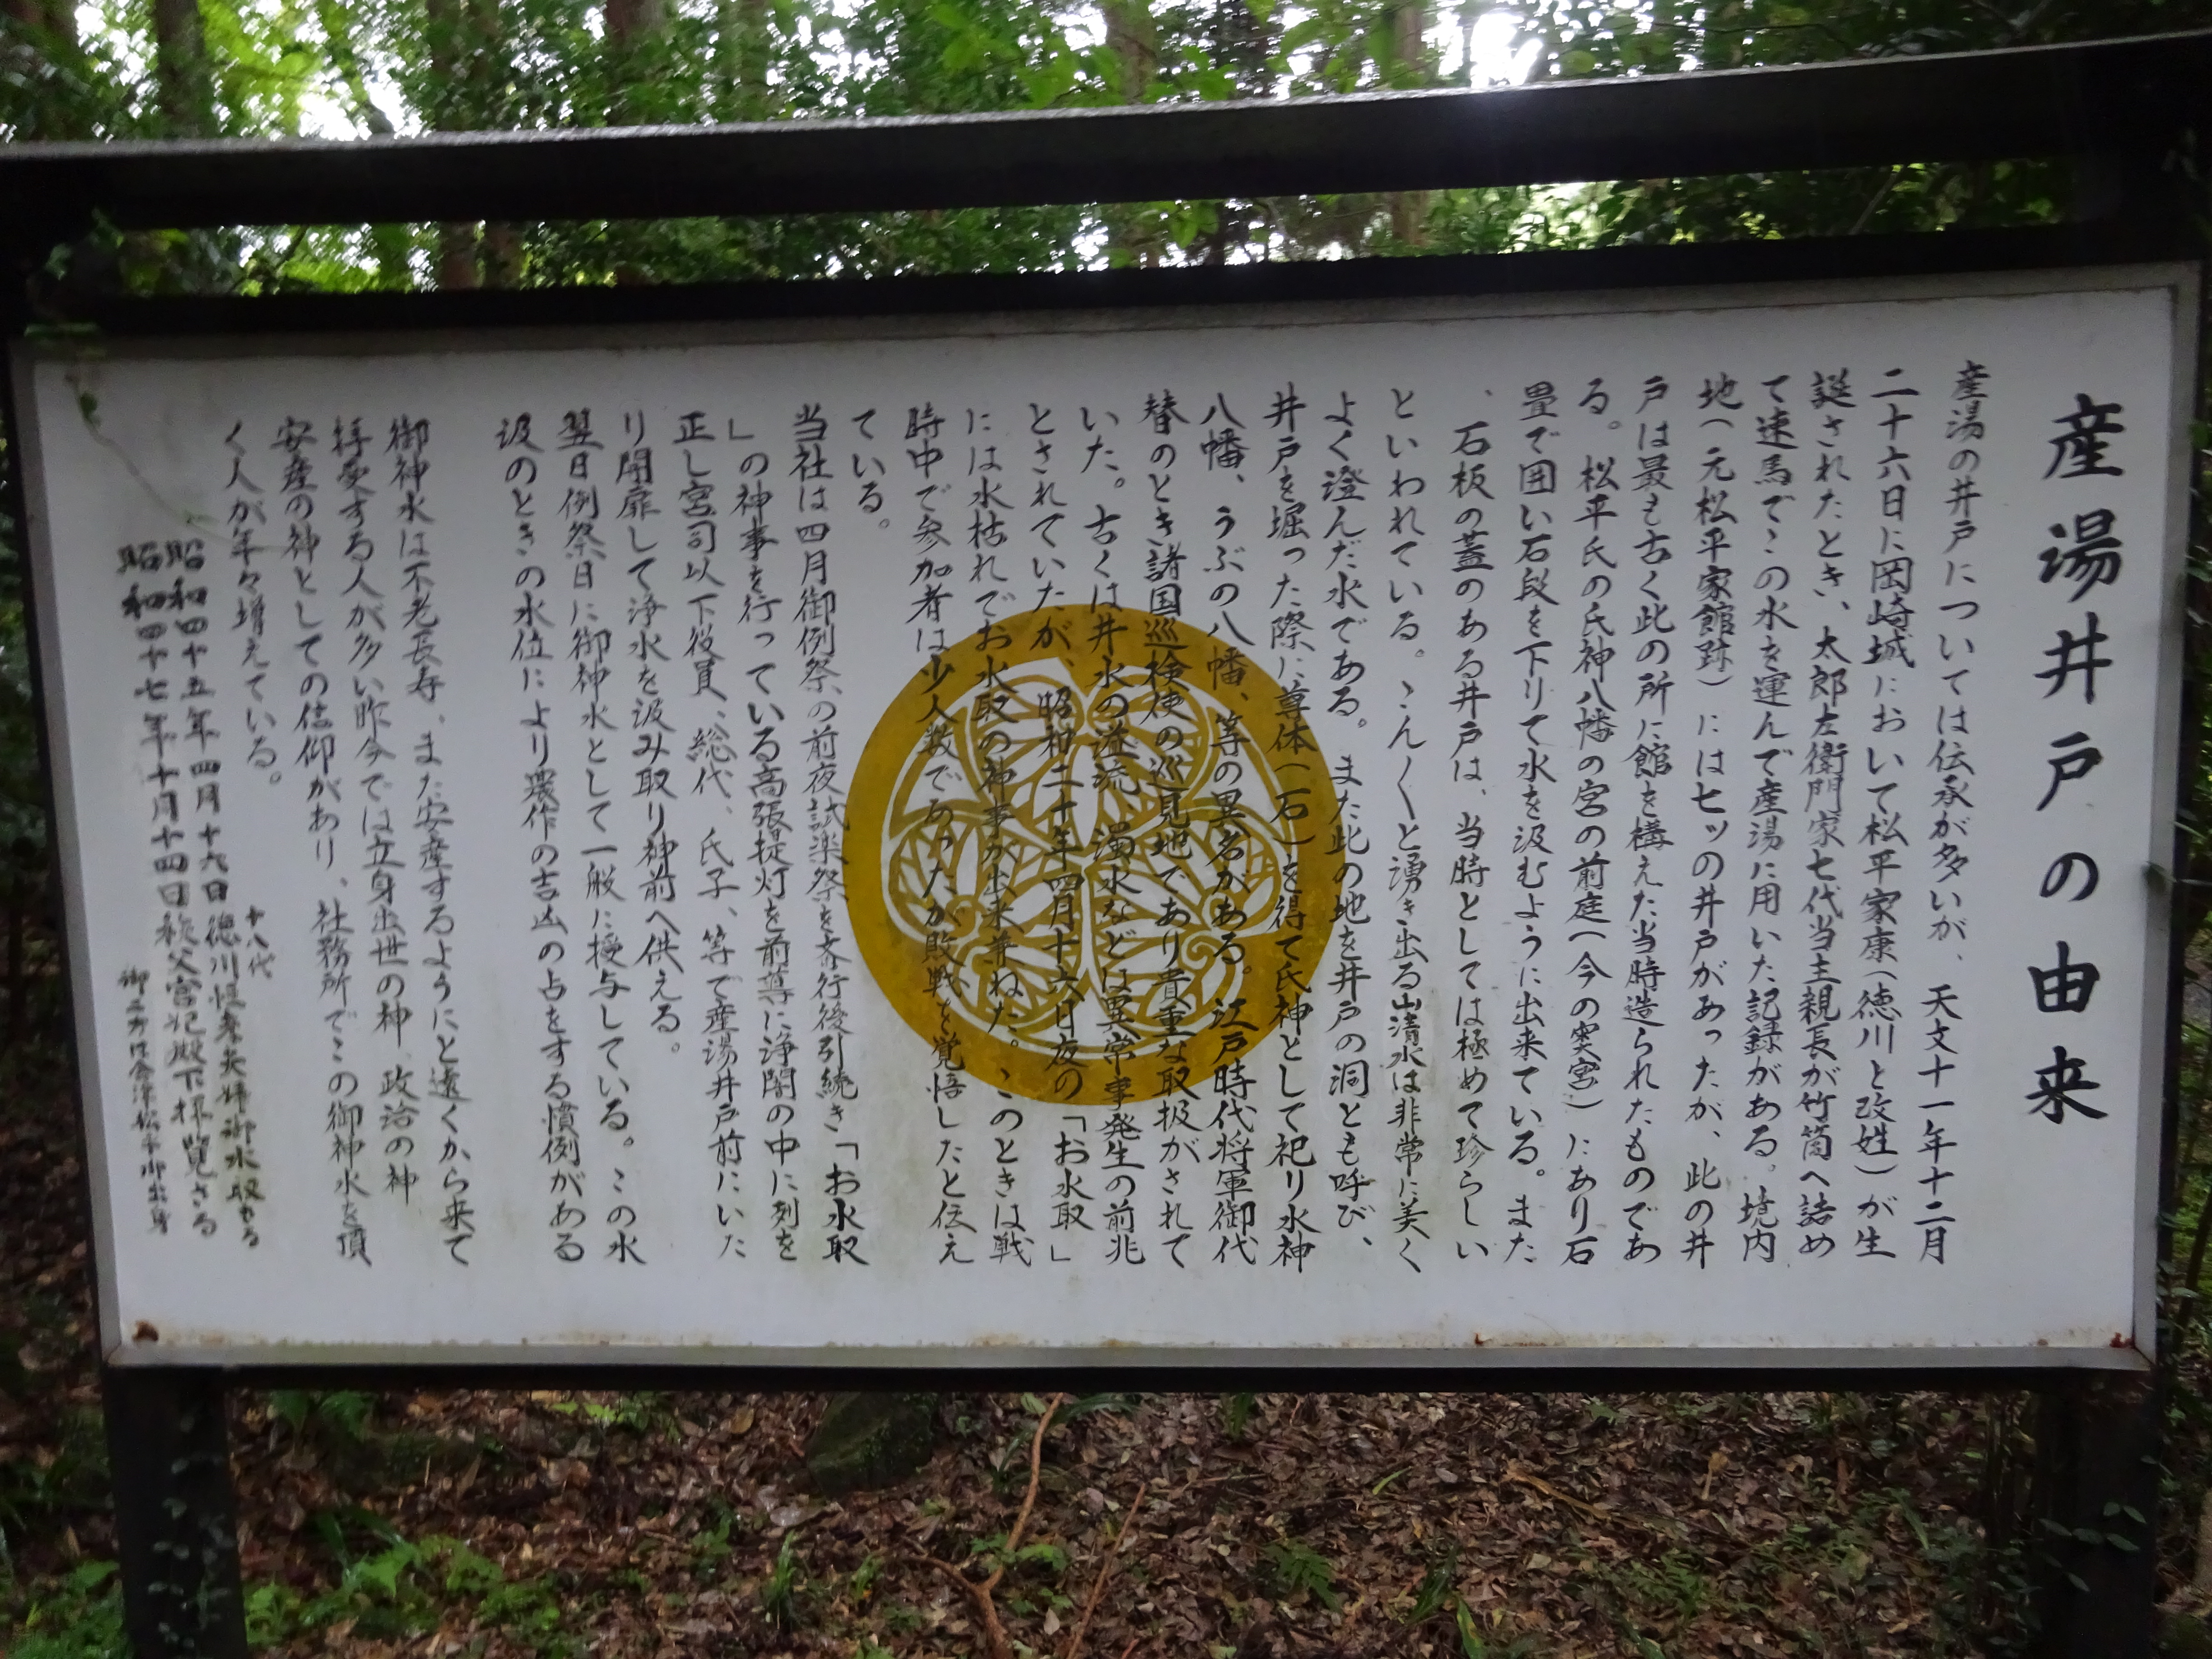 産湯井戸の由来
産湯の井戸については伝承が多いが、天文十一年十二月
二十六日に岡崎城において松平家康(徳川と改姓)が生
誕されたとき、太郎左衛門家七代当主親長が竹筒へ詰め
て速馬でこの水を運んで産湯に用いた記録がある。境内
地(元松平家館跡)には七ッの井戸があったが、此の井
戸は最も古く此の所に館を構えた当時造られたものであ
る。松平氏の氏神八幡の宮の前庭(今の奥宮)にあり石
畳で囲い石段を下りて水を汲むように出来ている。また
、石板の蓋のある井戸は、当時としては極めて珍らしい
といわれている。こんくと湧き出る山清水は非常に美く
よく澄んだ水である。また此の地を井戸の洞とも呼び、
井戸を堀った際に尊体(石)を得て氏神として祀り水神
八幡、うぶの八幡、等の異名がある。江戸時代将軍御代
替のとき諸国巡検使の巡見地であり貴重な取扱がされて
いた。古くは井水の溢流、濁水などは異常事発生の前兆
とされていたが、昭和二十年四月十六日夜の「お水取」
には水枯れでお水取の神事が出来兼ねた。このときは戦
時中で参加者は少人数であったが敗戦を覚悟したと伝え
ている。
当社は四月御例祭の前夜試楽祭を斉行後引続き「お水取
」の神事を行っている高張提灯を前導に浄闇の中に列を
正し宮司以下役員、総代、氏子、等で産湯井戸前にいた
り開扉して浄水を汲み取り神前へ供える。
翌日例祭日に御神水として一般に授与している。この水
汲のときの水位により農作の吉凶の占をする慣例がある
御神水は不老長寿、また安産するようにと遠くから来て
拝受する人が多い昨今では立身出世の神、政治の神
安産の神としての信仰があり、社務所でこの御神水を頂
く人が年々増えている。
十八代
昭和四十五年四月十六日徳川恒孝夫婦御水取さる
昭和四十七年十月十四日秩父宮妃殿下拝覧さる
御二方は会津松平御出身